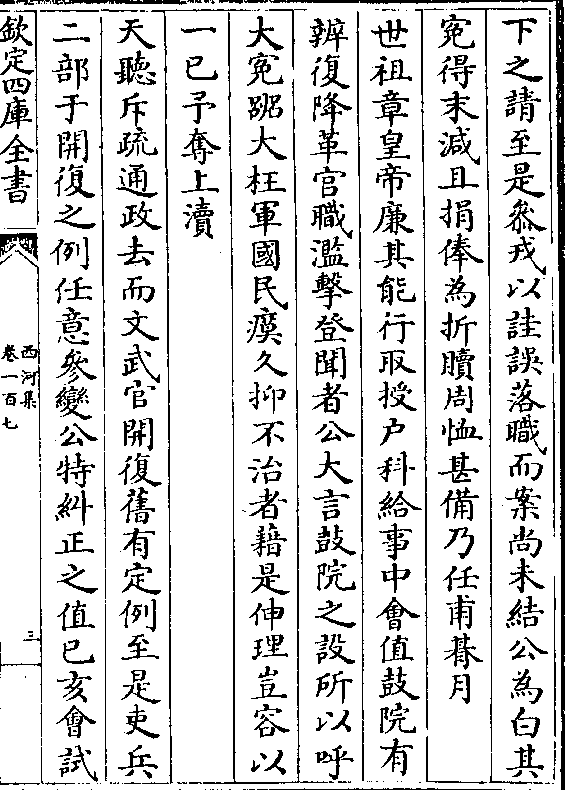 下之請至是叅戎以詿誤落職而案尚未結公為白其
寃得末減且捐俸為折贖周恤甚備乃任甫朞月
世祖章皇帝廉其能行取授户科給事中會值鼓院有
辨復降革官職濫擊登聞者公大言鼓院之設所以呼
大寃䠶大枉軍國民瘼久抑不治者藉是伸理豈容以
一已予奪上瀆
天聽斥疏通政去而文武官開復舊有定例至是吏兵
二部于開復之例任意參變公特糾正之值己亥會試
欽定四庫全書
西河集
卷一百七
三